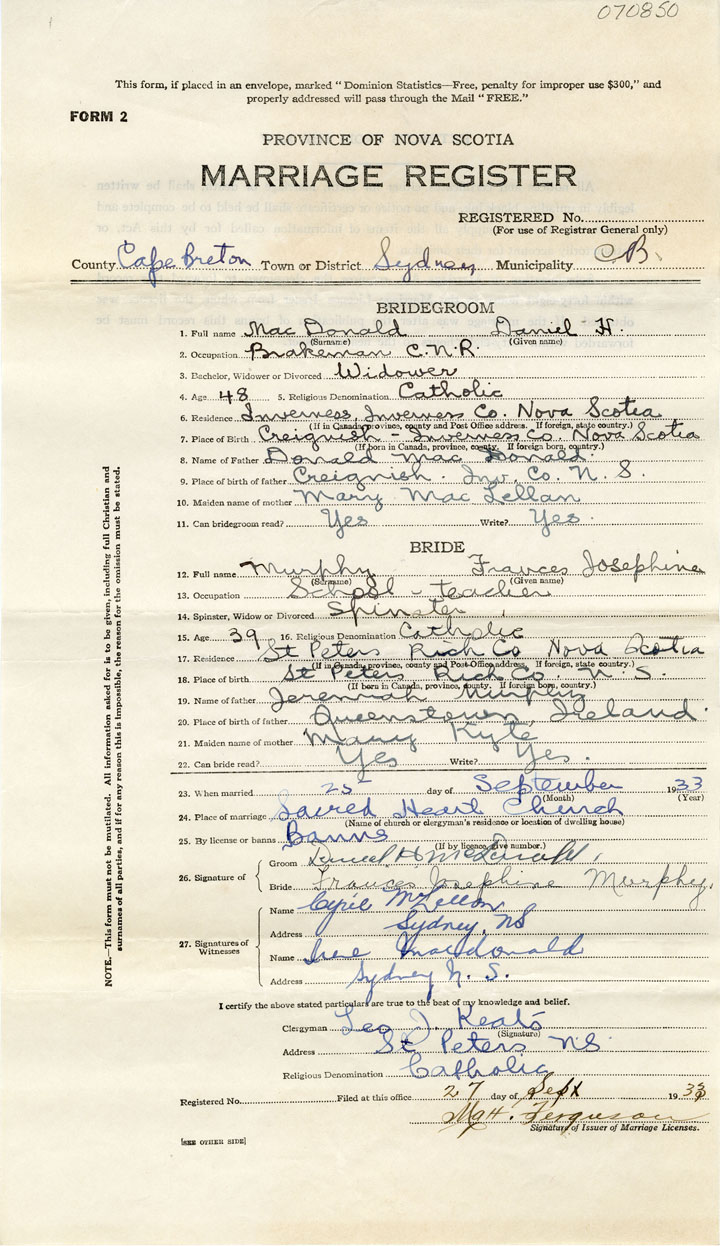 070850
This form, if placed in an envelope, marked "Dominion Statistics—Free, penalty for improper use $300," and
properly addressed will pass through the Mail "FREE."
FORM 2
PROVINCE OF NOVA SCOTIA
MARRIAGE REGISTER
REGISTERED No.
(For use of Registrar General only)
County Cape Breton Town or District Sydney Municipality C B.
BRIDEGROOM
1. Full name Mac Donald Daniel H.
(Surname) (Given name)
2. Occupation Brakeman C.N.R.
3. Bachelor, Widower or Divorced Widower
4. Age 48 5. Religious Denomination Catholic
6. Residence Inverness, Inverness Co. Nova Scotia
(If in Canada, province, county and Post Office address. If foreign, state country.)
7. Place of Birth Creignish - Inverness Co. Nova Scotia
(If born in Canada, province, county. If foreign born, country.)
8. Name of Father Donald Mac Donald.
9. Place of birth of father Creignish. Inv. Co. N. S.
10. Maiden name of mother Mary Mac Lellan
11. Can bridegroom read? Yes Write? Yes.
BRIDE
12. Full name Murphy Frances Josephine
(Surname) (Given name)
13. Occupation School-teacher
14. Spinster, Widow or Divorced Spinster
15. Age 39 16. Religious Denomination Catholic
17. Residence St Peters Rich Co Nova Scotia
(If in Canada, province, county and Post Office address. If foreign, state country.)
18. Place of birth St Peters Rich Co. N. S.
(If born in Canada, province, county. If foreign born, country.)
19. Name of father Jeremiah Murphy
20. Place of birth of father Queenstown, Ireland.
21. Maiden name of mother Mary Kyte
22. Can bride read? Yes Write? Yes.
23. When married 25 day of September 1933
(Month) (Year)
24. Place of marriage Sacred Heart Church
(Name of church or clergyman's residence or location of dwelling house)
25. By license or banns Banns
(If by licence, give number.)
26. Signature of
Groom Daniel H McDonald,
Bride Frances Josephine Murphy,
27. Signatures of Witnesses
Name Cyril McLellan
Address Sydney, NS
Name Irene Macdonald
Address Sydney N. S.
I certify the above stated particulars are true to the best of my knowledge and belief.
Clergyman Leo J. Keats
(Signature)
Address St Peters NS
Religious Denomination Catholic
Registered No. Filed at this office 27 day of Sept 1933
Ferguson
Signature of Issuer of Marriage Licenses.
[SEE OTHER SIDE]
NOTE.—This form must not be mutilated. All information asked for is to be given, including full Christian and
surnames of all parties, and if for any reason this is impossible, the reason for the omission must be stated.